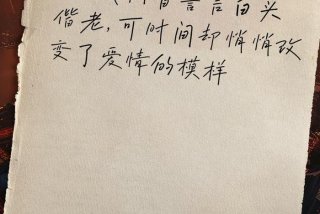 言白头
偕老,可时间却悄悄改
变了爱情的模样